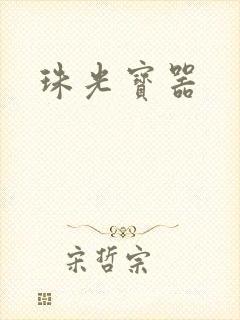 珠光寶器
宋哲宗